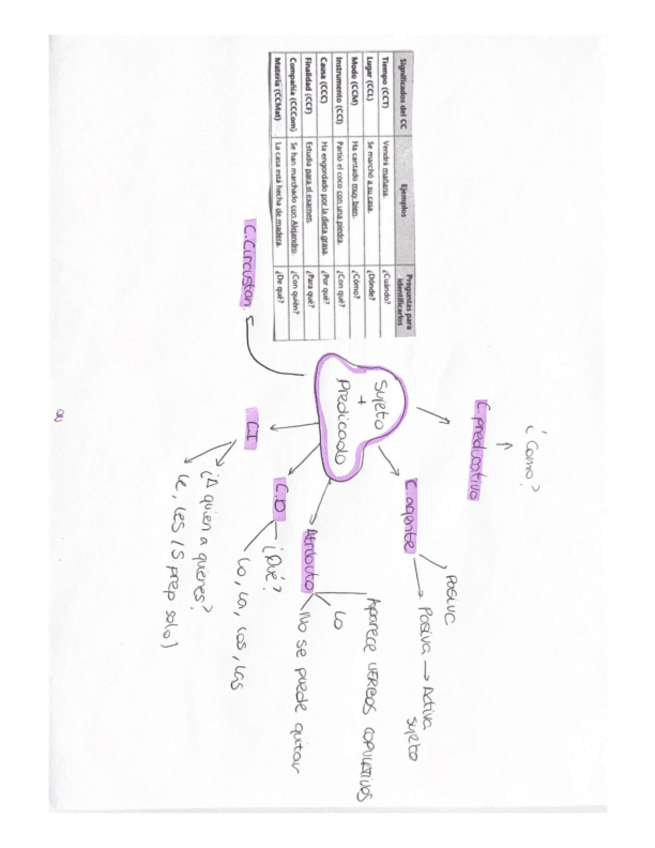 Significados del CC Ejemplos Preguntas para identificarlos
Tiempo (CCT) Vendrá mañana. ¿Cuándo?
Lugar (CCL) Se marchó a su casa. ¿Dónde?
Modo (CCM) Ha cantado muy bien. ¿Cómo?
Instrumento (CCI) Partió el coco con una piedra. ¿Con qué?
Causa (CCC) Ha engordado por la dieta grasa. ¿Por qué?
Finalidad (CCF) Estudia para el examen. ¿Para qué?
Compañía (CCCom) Se han marchado con Alejandro. ¿Con quién?
Materia (CCMat) La casa está hecha de madera. ¿De qué?
C.Circustan.
Sujeto
+
Predicado
C. predicativo
¿Como?
C. agente
Pasiva → Activa
sujeto
Atributo
Aparece VERBOS COPULATIVOS
Lo
No se puede quitar
C.D
¿Qué?
Lo, La, Los, Las
C.I
¿A quien a quienes?
le, les (S prep solo)